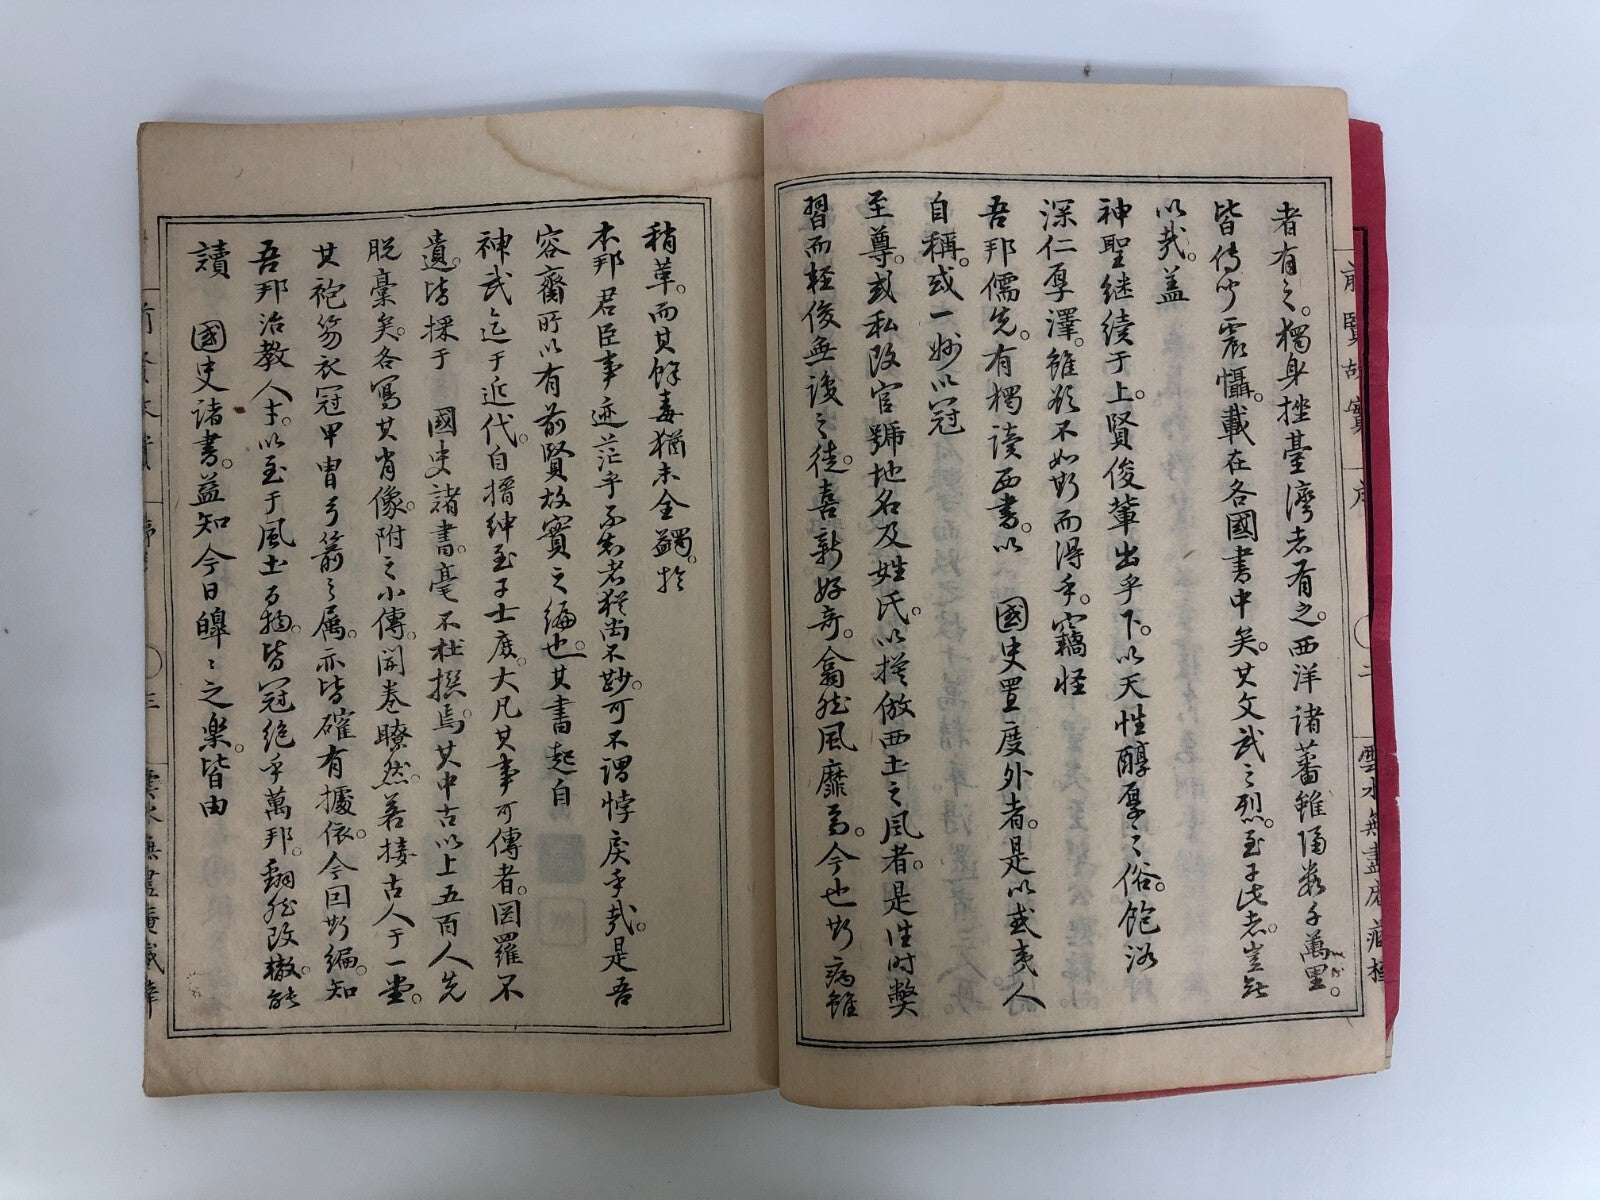 者有之。獨身挫臺灣者有之。西洋諸蕃雖隔數千萬里。
皆傳聞震懾。載在各國書中矣。其文武之烈。至于此者。豈無
以哉。蓋
神聖継続于上。賢俊輩出乎下。以天性醇厚之俗。飽浴
深仁厚澤。雖欲不如斯而得乎。竊怪
吾邦儒先。有獨讀西書。以 國史置度外者。是以或夷人
自稱。或一妙以冠
至尊。或私改官號地名及姓氏。以摸倣西土之風者。是往時弊
習而輕俊無後之徒。喜新好奇。翕然風靡焉。今也斯病雖
稍革。而其餘毒猶未全蠲。於
本邦君臣事迹茫乎不知者猶尚不尠。可不謂悖戻乎哉。是吾
容齋所以有前賢故實之編也。其書起自
神武迄于近代。自搢紳至于士庶。大凡其事可傳者。网羅不
遺。皆採于 國史諸書。毫不杜撰焉。其中古以上五百人先
脱稾矣。各寫其肖像。附之小傳。開卷瞭然。若接古人于一堂。
其袍笏衣冠甲冑弓箭之属。亦皆確有據依。今因斯編。知
吾邦治教人才。以至于風土百物。皆冠絶乎萬邦。翻然改轍。能
讀 國史諸書。益知今日皥々之樂。皆由
前賢故實 序 二 雲水無盡庵藏梓